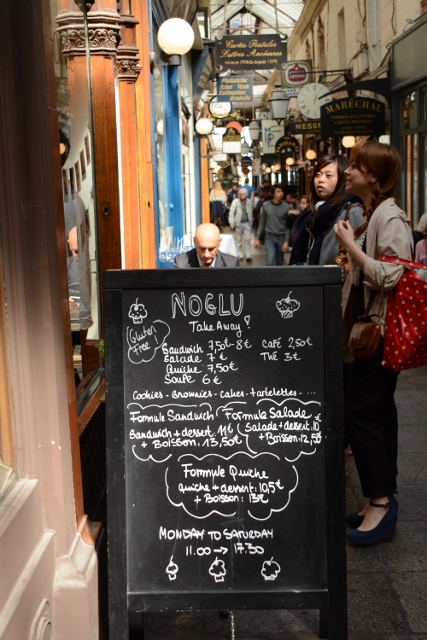 Cartes Postales
Lettres Anciennes
MARÉCHAL
NOGLU
Take Away!
Gluten Free!
Sandwich 7,50€-8€
Salade 7€
Quiche 7,50€
Soupe 6€
Café 2,50€
Thé 3€
Cookies - Brownies - Cakes - tartelettes - ...
Formule Sandwich
Sandwich + dessert: 11€
+ Boisson: 13,50€
Formule Salade
Salade + dessert: 10
+ Boisson: 12,50
Formule Quiche
quiche + dessert: 10,5€
+ Boisson: 13€
MONDAY TO SATURDAY
11.00 → 17.30